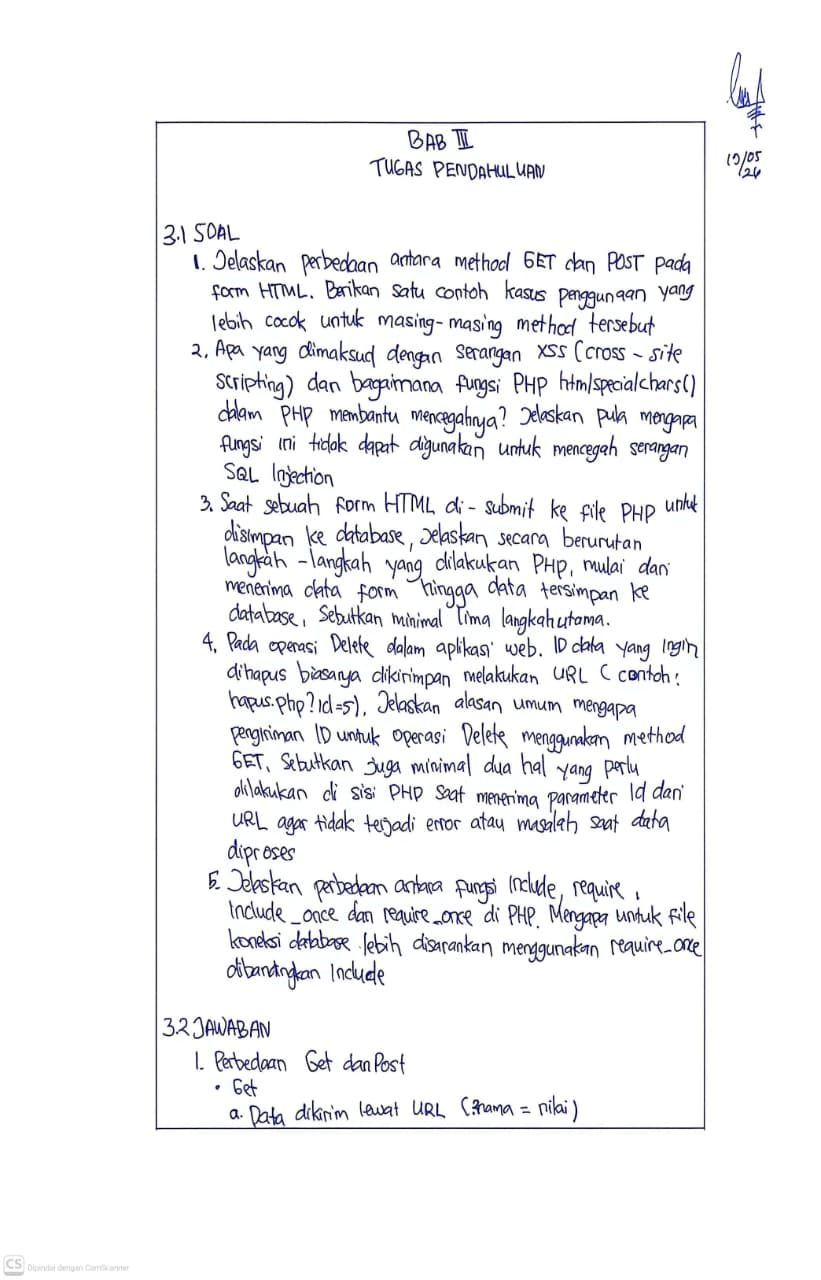 19/05
/26
BAB III
TUGAS PENDAHULUAN
3.1 SOAL
1. Jelaskan perbedaan antara method GET dan POST pada
form HTML. Berikan satu contoh kasus penggunaan yang
lebih cocok untuk masing-masing method tersebut
2. Apa yang dimaksud dengan serangan XSS (cross-site
scripting) dan bagaimana fungsi PHP htmlspecialchars()
dalam PHP membantu mencegahnya? Jelaskan pula mengapa
fungsi ini tidak dapat digunakan untuk mencegah serangan
SQL Injection
3. Saat sebuah form HTML di-submit ke file PHP untuk
disimpan ke database, Jelaskan secara berurutan
langkah-langkah yang dilakukan PHP, mulai dari
menerima data form hingga data tersimpan ke
database, Sebutkan minimal lima langkah utama.
4. Pada operasi Delete dalam aplikasi web. ID data yang ingin
dihapus biasanya dikirimpan melakukan URL (contoh:
hapus.php?id=5), Jelaskan alasan umum mengapa
pengiriman ID untuk operasi Delete menggunakan method
GET, Sebutkan juga minimal dua hal yang perlu
dilakukan di sisi PHP saat menerima parameter Id dari
URL agar tidak terjadi error atau masalah saat data
diproses
5. Jelaskan perbedaan antara fungsi Include, require,
Include_once dan require_once di PHP. Mengapa untuk file
koneksi database lebih disarankan menggunakan require_once
dibandingkan Include
3.2 JAWABAN
1. Perbedaan Get dan Post
• Get
a. Data dikirim lewat URL (?nama = nilai)
CS Dipindai dengan CamScanner